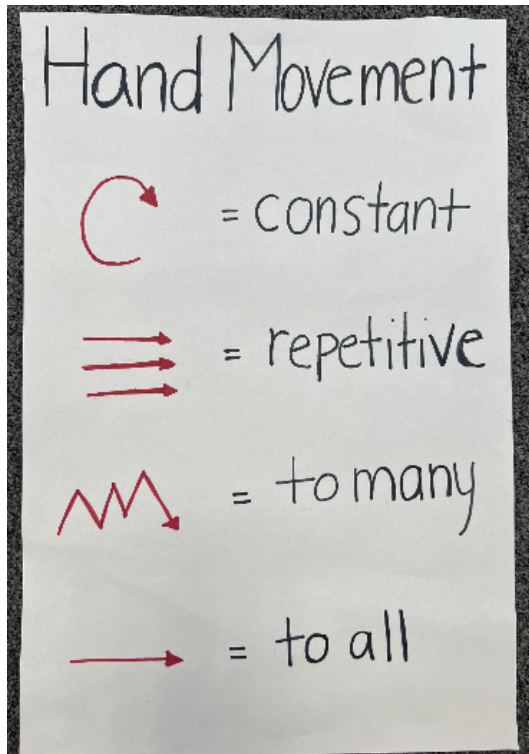 Hand Movement
= constant
= repetitive
= to many
= to all